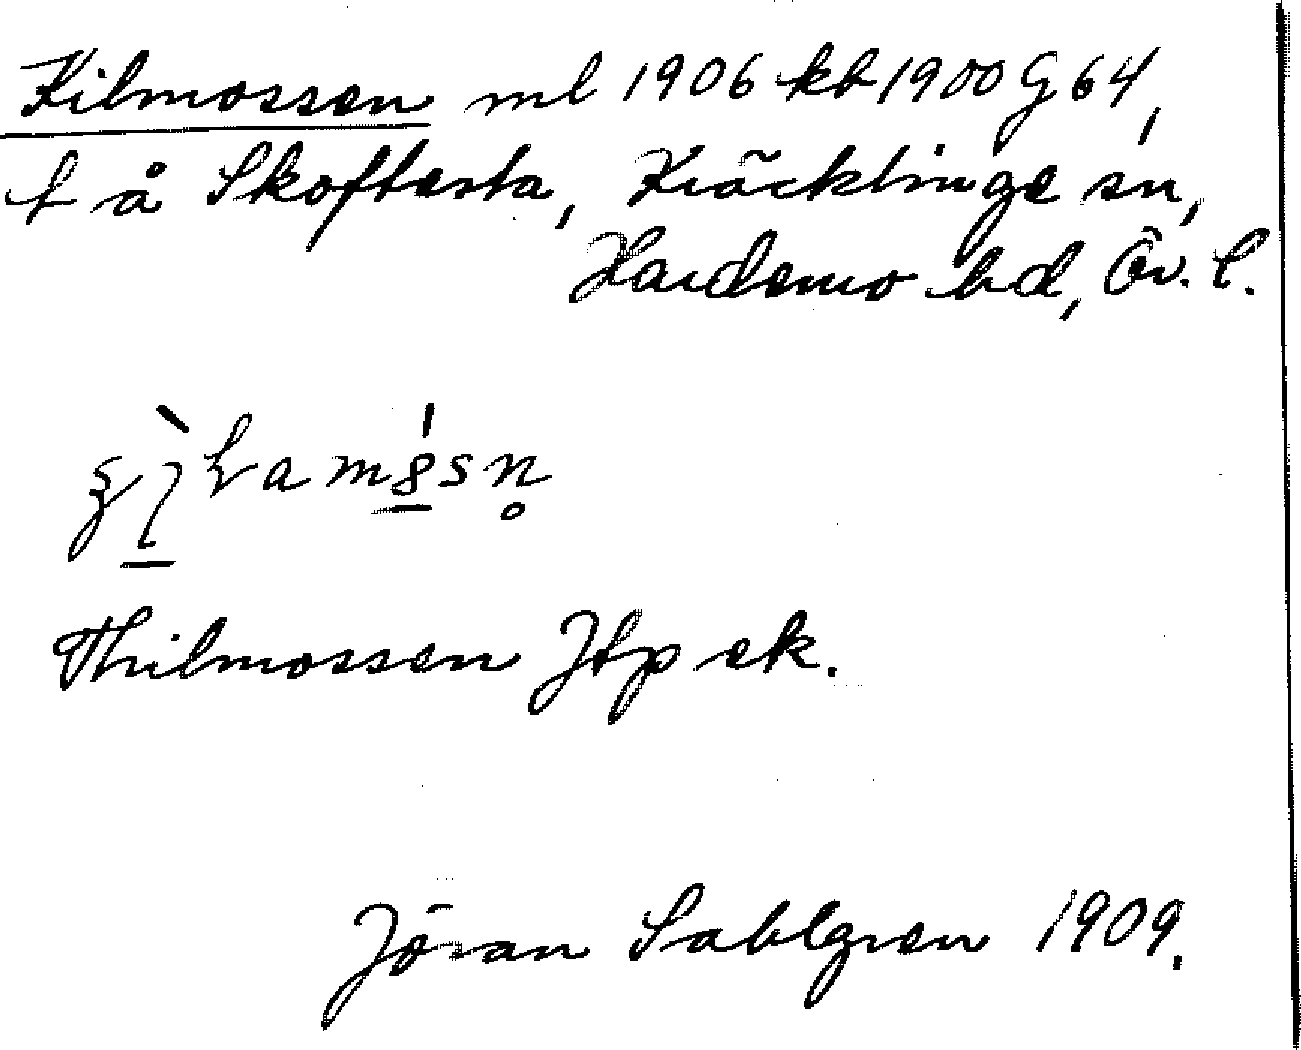 Kilmossen ml 1906 kb 1900 G 64,
t å Skoftesta, Kräcklinge sn,
Hardemo hd, Ör. l.
Thilmossen Jtp ek.
Jöran Sahlgren 1909.